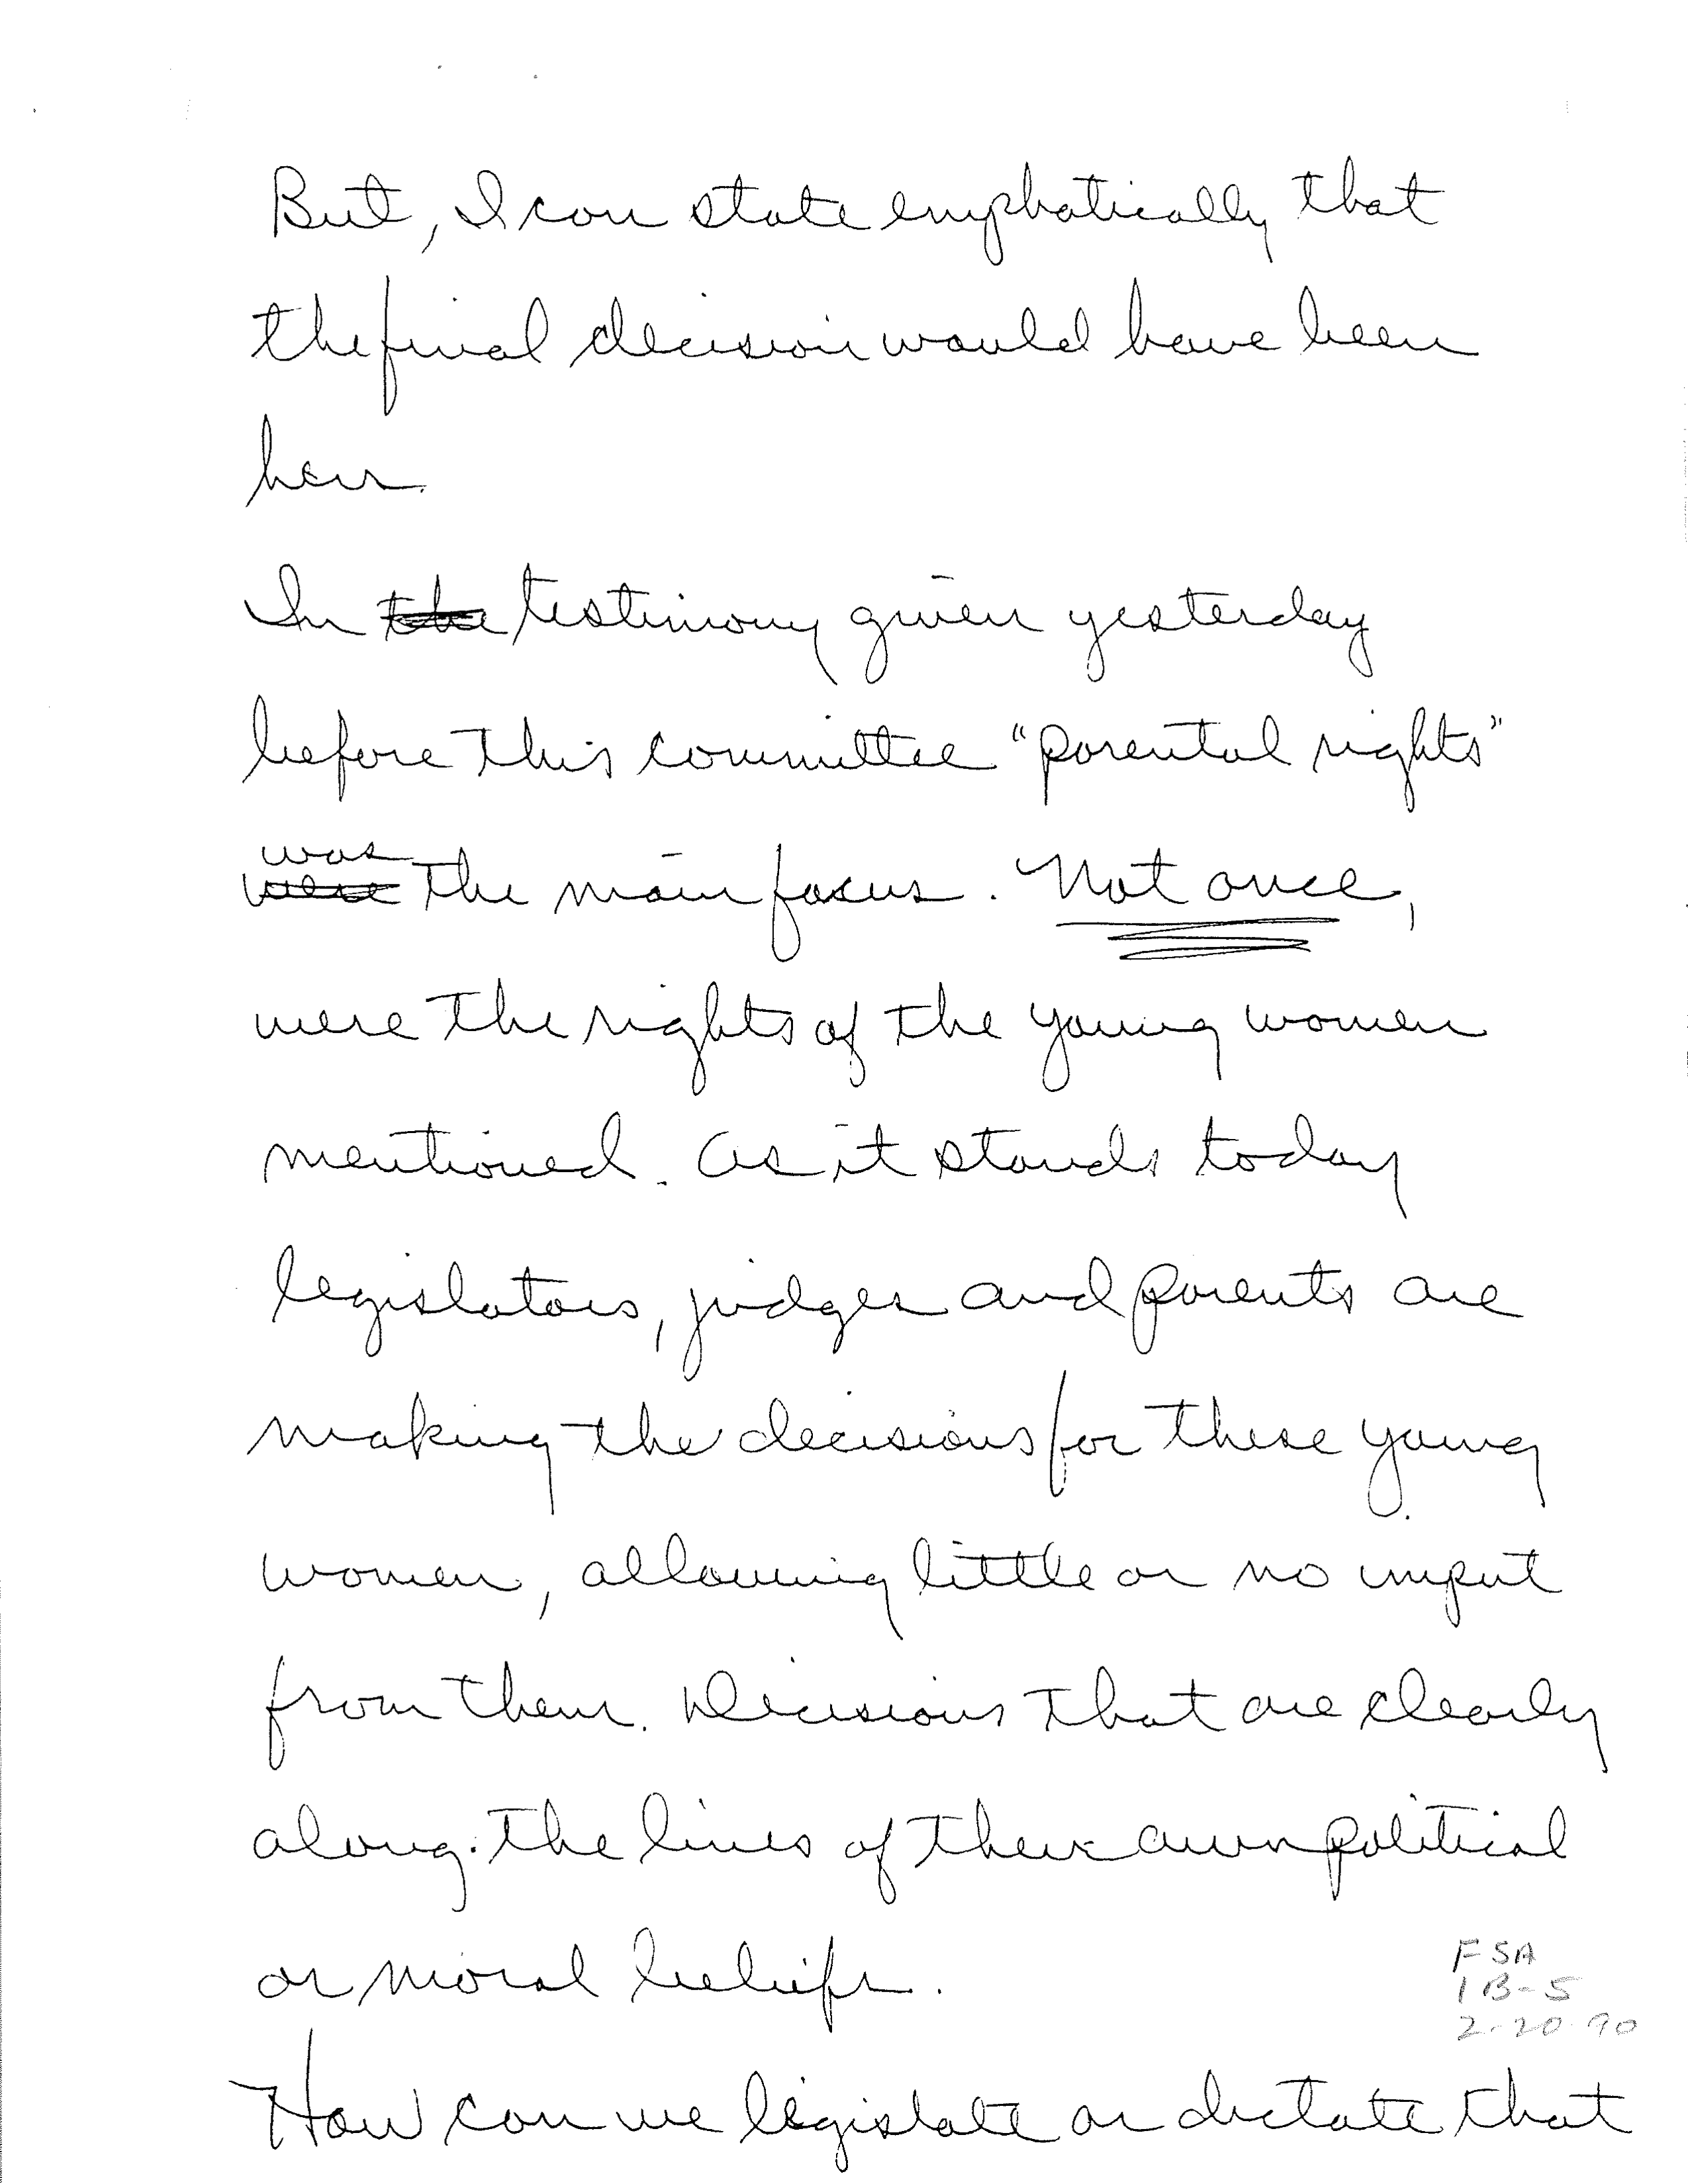 But, I can state emphatically that
the final decision would have been
hers.
In the testimony given yesterday
before this committee "parental rights"
was
were the main focus. Not once,
were the rights of the young women
mentioned. As it stands today
legislators, judges and parents are
making the decisions for these young
women, allowing little or no imput
from them. Decisions that are clearly
along the lines of their own political
or moral beliefs.
FSA
1B-5
2-20-90
How can we legislate or dictate that